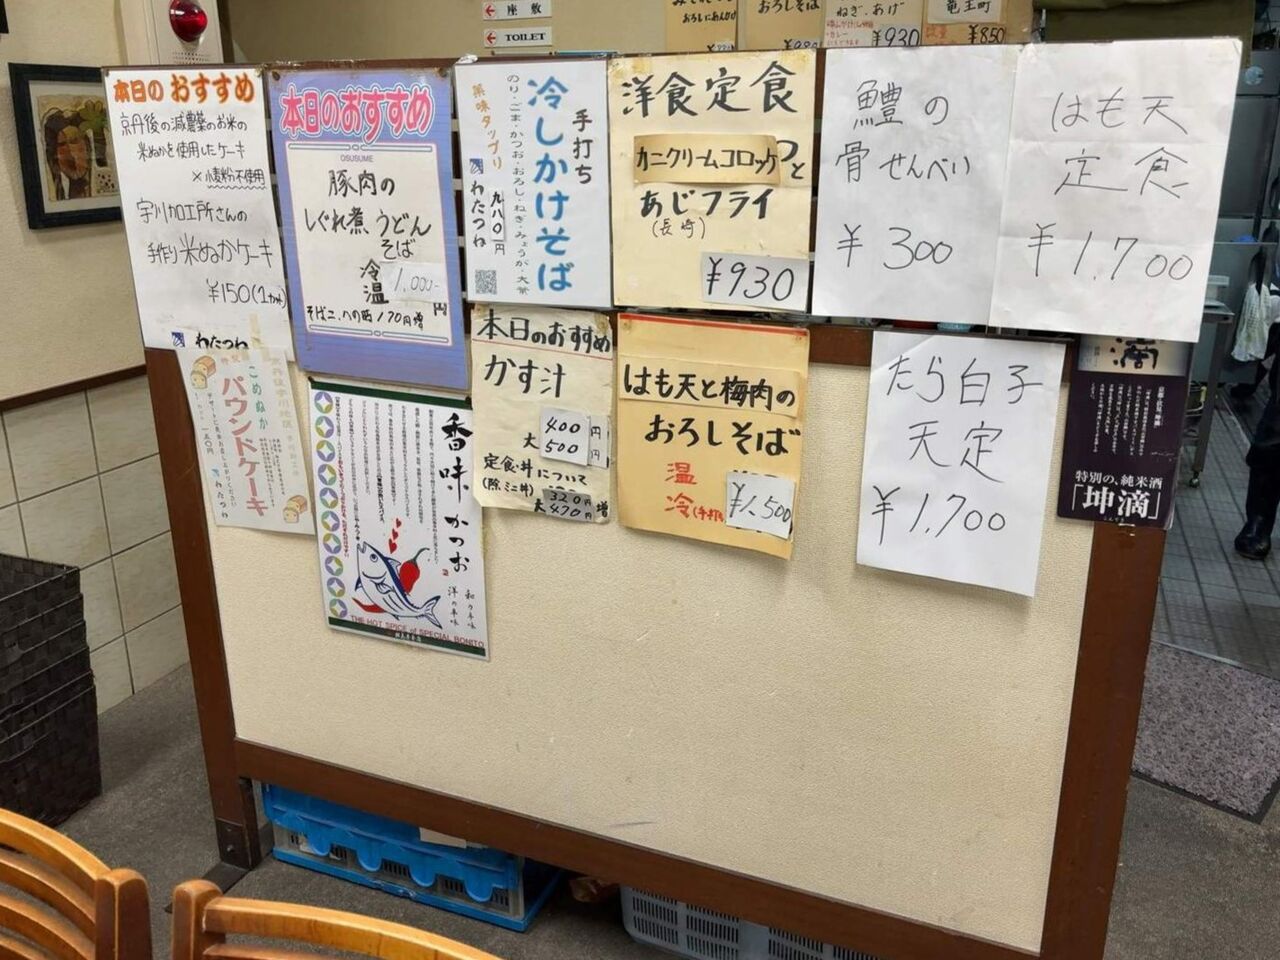 座敷
TOILET
おろしにあんかけ
おろしそば
ねぎ・あげ
¥930
竜王町
¥850
本日の おすすめ
京丹後の減農薬のお米の
米ぬかを使用したケーキ
※小麦粉不使用
宇川加工所さんの
手作り米ぬかケーキ
¥150(1カット)
わたつね
本日のおすすめ
OSUSUME
豚肉の
しぐれ煮 うどん
そば
冷
温
1,000-
円
そば二、八の時 170円増
手打ち
冷しかけそば
のり・ごま・かつお・おろし・ねぎ・みょうが・大葉
薬味タップリ
九八〇円
わたつね
洋食定食
カニクリームコロッケ
と
あじフライ
(長崎)
¥930
鱧の
骨せんべい
¥300
はも天
定食
¥1,700
こめぬか
パウンドケーキ
わたつね
香味かつお
和の辛味
洋の辛味
THE HOT SPICE of SPECIAL BONITO
本日のおすすめ
かす汁
400円
大500円
定食・丼について
(除.ミニ丼)
320円
大420円増
はも天と梅肉の
おろしそば
温
冷(手打)
¥1,500
たら白子
天定
¥1,700
特別の、純米酒
「坤滴」